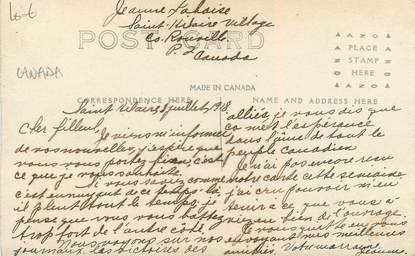 Jeanne Lahaise
Saint-Hilaire Village
Co. Rouville
P. Q.
Canada
CANADA
POST CARD
AZO
PLACE
STAMP
HERE
AZO
MADE IN CANADA
CORRESPONDENCE HERE
NAME AND ADDRESS HERE
Saint Hilaire juillet, 1918
Cher filleul,
Je viens m'informer
de vos nouvelles, j'espère que
vous vous portez bien, c'est
ce que je vous souhaite.
Si vous saviez comme
c'est ennuyant ce temps-ci
il pleut tout le temps, je
pense que vous vous battez
trop fort de l'autre côté.
Nous voyons sur nos
journaux les victoires des
alliés, je vous dis que
ça met l'espérance
dans l'âme de tout le
peuple Canadien
Je n'ai pas encore reçu
votre carte cette semaine
j'ai cru pouvoir m'en
tenir à ce que vous a
bien de l'ouvrage.
Je vous quitte en vous
envoyant mes meilleures
amitiés. Votre marraine
Jeanne